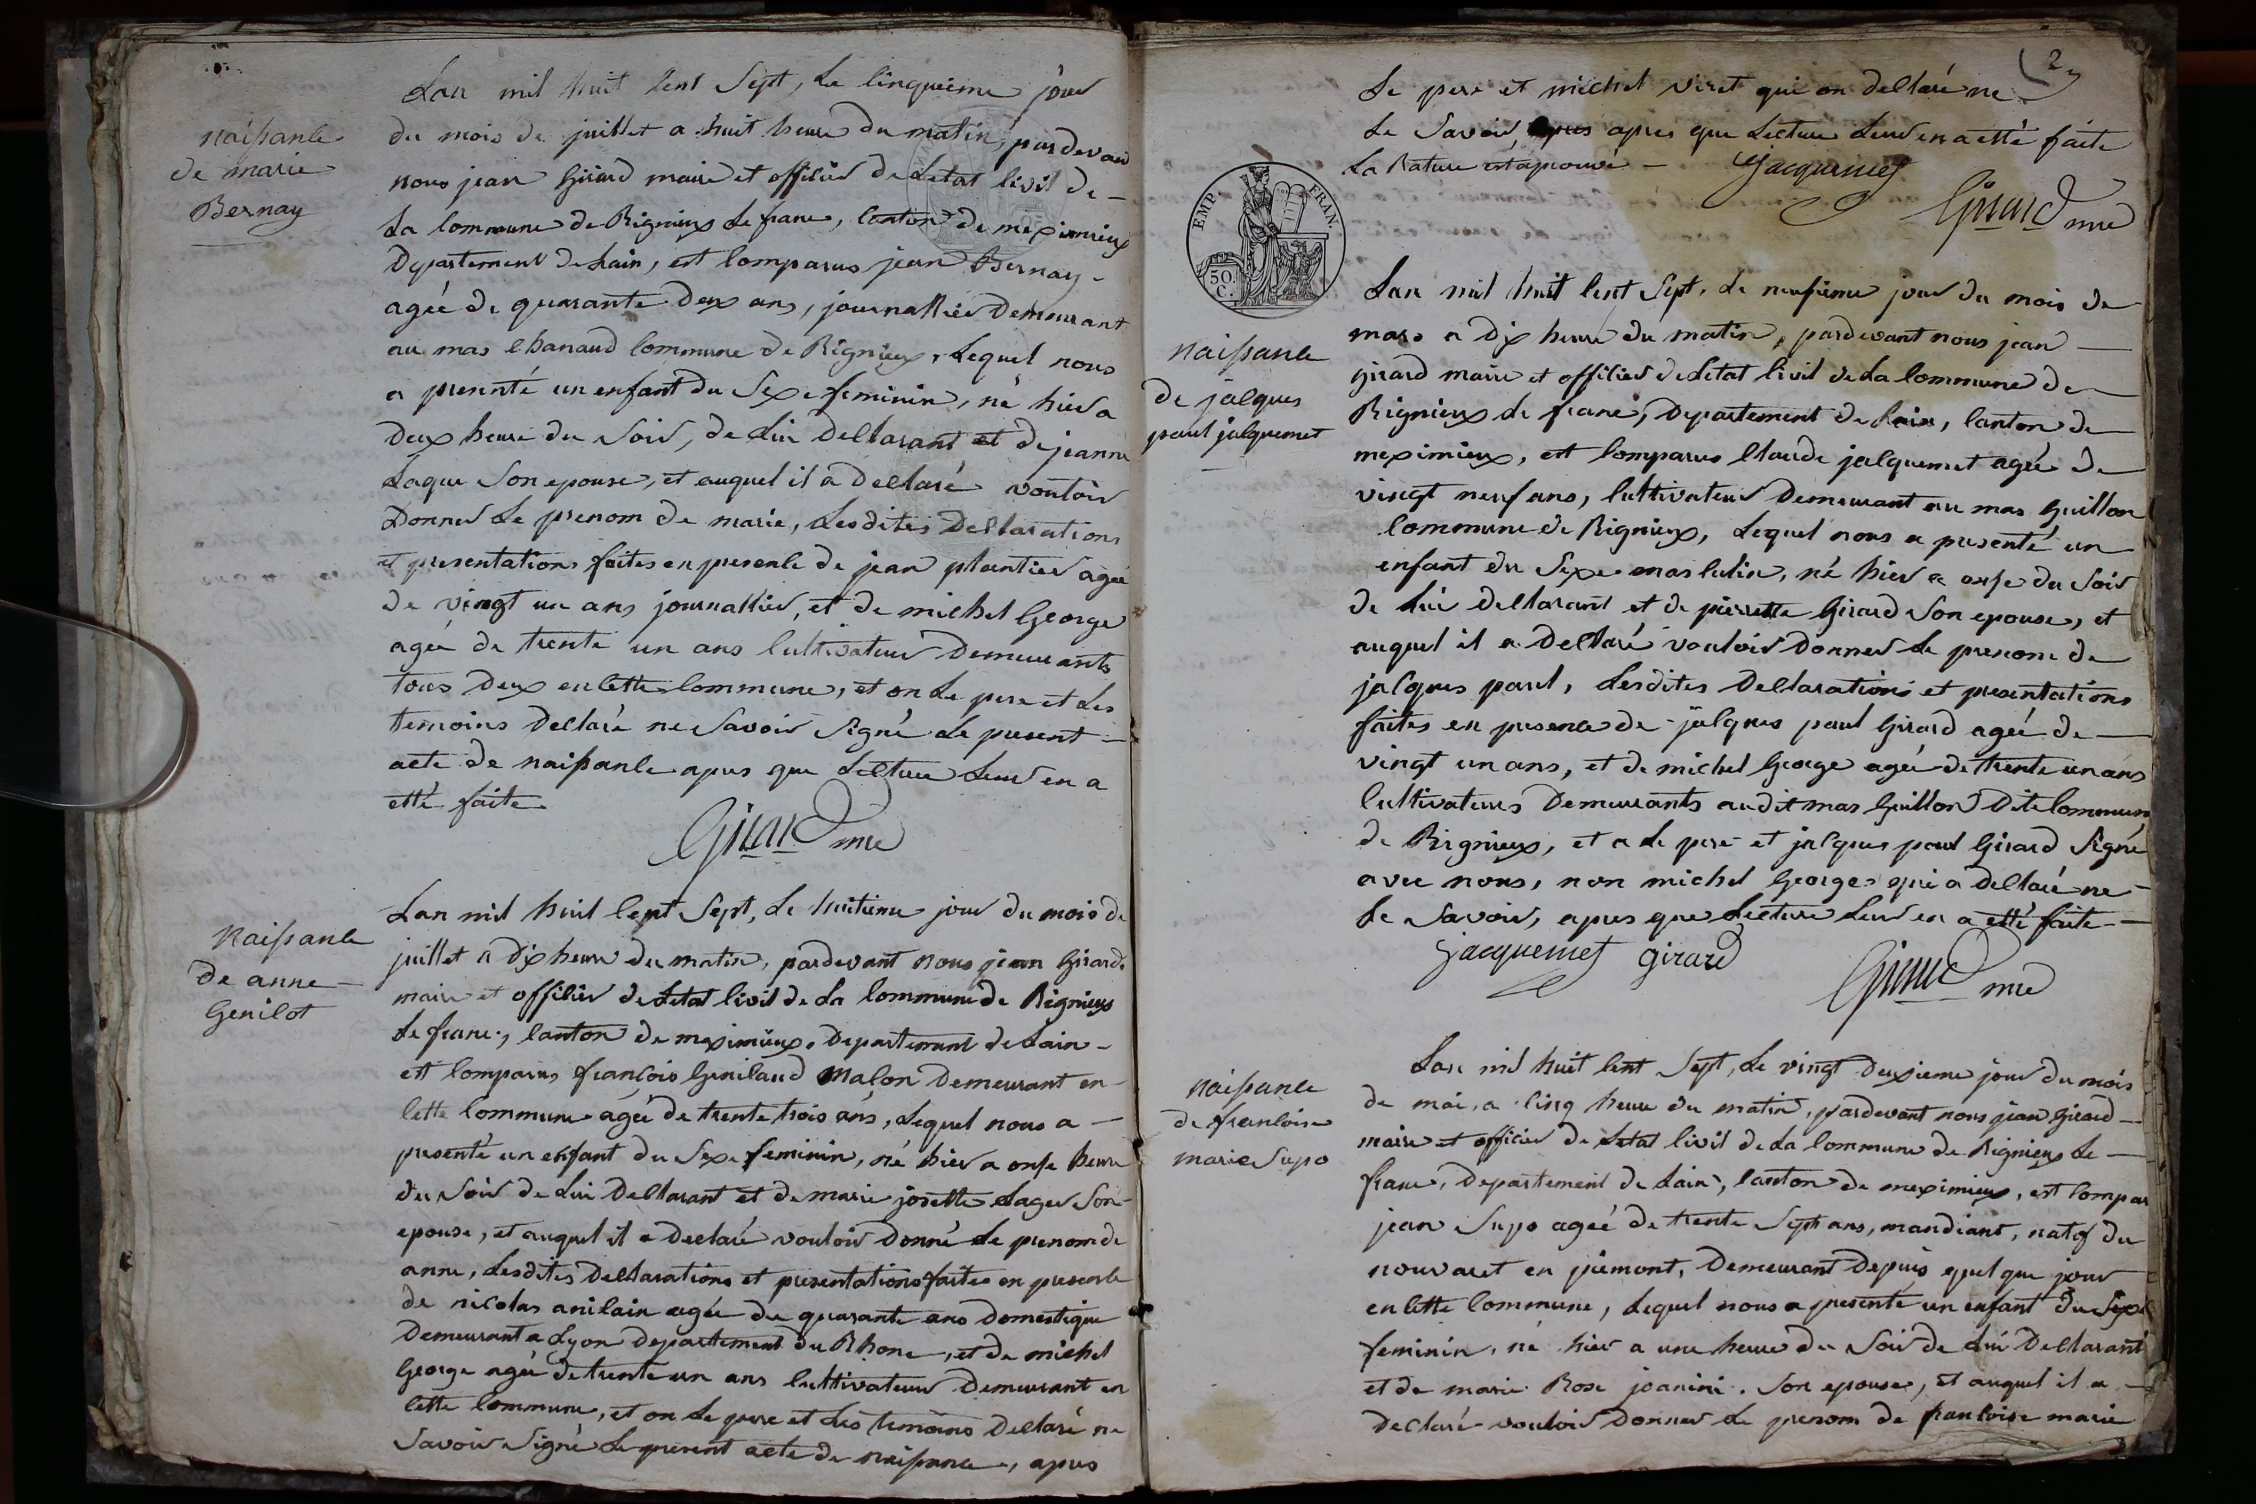 naissance
de marie
Bernay
Lan mil huit Cent Sept, Le Cinquieme jour
du mois de juillet a huit heure du matin, pardevant
nous jean Girard maire et officier de Letat Civil de
La Commune de Rignieux Le franc, Canton de meximieux
Departement de Lain, est Comparus jean Bernay
ageé de quarante Deux ans, journallier Demeurant
au mas Chanaud Commune de Rignieux, Lequel nous
a presenté un enfant du Sexe feminin, né hier a
Deux heure du Soir, de Lui Declarant et de jeanne
Laque Son epouse, et auquel il a Declaré vouloir
Donner Le prenom de marie, Lesdites Declarations
et presentations faites en presence de jean plantier ageé
de vingt un ans journallier, et de michel George
ageé de trente un ans Cultivateur Demeurants
tous Deux en Cette Commune, et on Le pere et Les
temoins Declaré ne Savoir Signé Le present
acte de naissance apres que Lecture Leur en a
etté faite
Girard mre
Naissance
de anne
Genilot
Lan mil huit Cent Sept, Le huitieme jour du mois de
juillet a Dix heure du matin, pardevant nous jean Girard
maire et officier de Letat Civil de La Commune de Rignieux
Le franc, Canton de meximieux, Departement de Lain
est Comparus françois Genilaud maçon Demeurant en
Cette Commune ageé de trente trois ans, Lequel nous a
presenté un enfant du Sexe feminin, né hier a onse heure
du Soir de Lui Declarant et de marie josette Lager Son
epouse, et auquel il a Declaré vouloir Donné Le prenom de
anne, Lesdites Declarations et presentations faites en presence
de nicolas anilain ageé de quarante ans Domestique
Demeurant a Lyon Departement du Rhone, et de michel
George ageé de trente un ans Cultivateur Demeurant en
Cette Commune, et on Le pere et Les temoins Declaré ne
Savoir Signé Le present acte de naissance, apres
2
Le pere et michel viret qui on Declaré ne
Le Savoir apres que Lecture Leur en a etté faite
La Rature est aprouvé
Jacquemet
Girard mre
EMP. FRAN.
50 C.
Naissance
de jacques
paul jacquemet
Lan mil huit Cent Sept, Le neufieme jour du mois de
mars a Dix heure du matin, pardevant nous jean
Girard maire et officier de Letat Civil de La Commune de
Rignieux Le franc, Departement de Lain, Canton de
meximieux, est Comparus Claude jacquemet ageé de
vingt neuf ans, Cultivateur Demeurant au mas Guillon
Commune de Rignieux, Lequel nous a presenté un
enfant du Sexe masculin, né hier a onse du Soir
de Lui Declarant et de pierrette Girard Son epouse, et
auquel il a Declaré vouloir Donner Le prenom de
jacques paul, Lesdites Declarations et presentations
faites en presence de jacques paul Girard ageé de
vingt un ans, et de michel George ageé de trente un ans
Cultivateurs Demeurants audit mas Guillon Dite Commune
de Rignieux, et a Le pere et jacques paul Girard Signé
avec nous, non michel George qui a Declaré ne
Le Savoir, apres que Lecture Leur en a etté faite
Jacquemet Girard
Girard mre
Naissance
de francoise
marie Supo
Lan mil huit Cent Sept, Le vingt Deuxieme jour du mois
de mai, a Cinq heure du matin, pardevant nous jean Girard
maire et officier de Letat Civil de La Commune de Rignieux Le
franc, Departement de Lain, Canton de meximieux, est Compar
jean Supo ageé de trente Sept ans, mandiant, natif du
nouvaret en piemont, Demeurant Depuis quelque jour
en Cette Commune, Lequel nous a presenté un enfant du Sexe
feminin, né hier a une heure du Soir de Lui Declarant
et de marie Rose joanini Son epouse, et auquel il a
Declaré vouloir Donner Le prenom de francoise marie